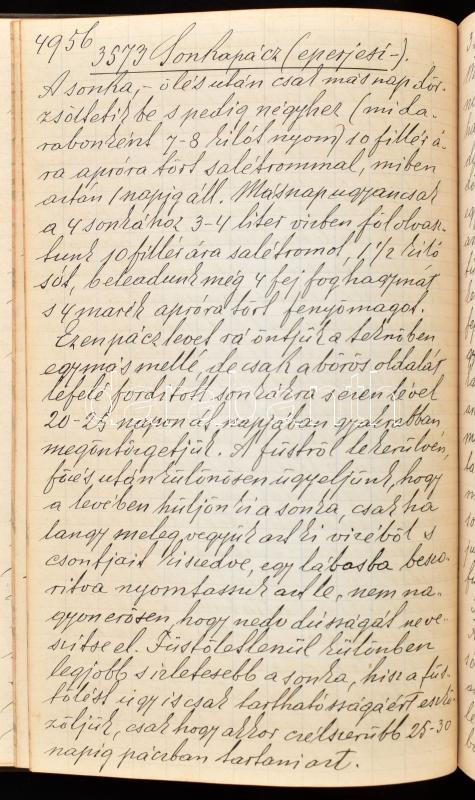 4956
3573 Sonkapácz (eperjesi-).
A sonka, - ölés után csak másnap dör-
zsöltetik be s pedig négyhez (mi da-
rabonként 7-8 kilót nyom) 10 fillér á-
ra apróra tört salétrommal, miben
aztán 1 napig áll. Másnap ugyancsak
a 4 sonkához 3-4 liter vizben föl olvasz-
tunk 10 fillér ára salétromot, 1 1/2 kiló
sót, beleadunk még 4 fej foghagymát
s 4 marék apróra tört fenyőmagot.
Ezen páczlevet rá öntjük a teknőben
egymás mellé, de csak a bőrös oldalát
lefelé fordított sonkákra s ezen lével
20-25 napon át napjában gyakrabban
megöntözgetjük. A füstről lekerülven,
főzés után különösen ügyeljünk, hogy
a levében hüljön ki a sonka, csak ha
langy meleg, vegyük azt ki vizéből s
csontjait kiszedve, egy lábasba beszo-
ritva nyomtassuk azt le, nem na-
gyon erősen, hogy nedv dússágát ne ve-
szitse el. Füstöletlenül különben
legjobb s izletesebb a sonka, hisz a füs-
tölést ugyis csak tarthatósságáért eszkö-
zöljük, csakhogy akkor czélszerűbb 25-30
napig páczban tartani azt.